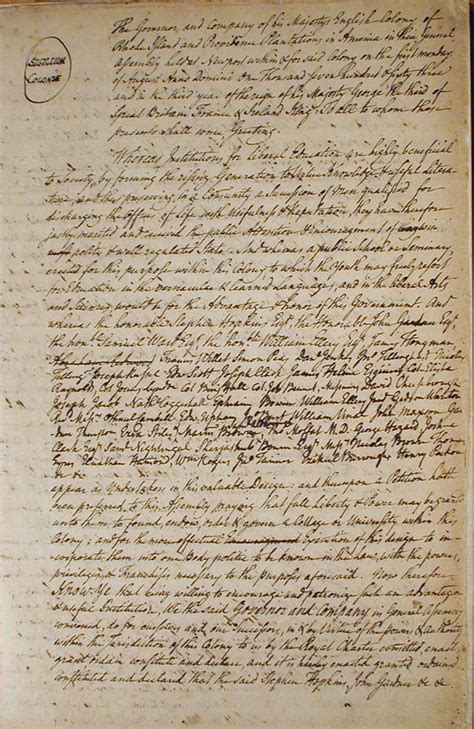 SIGILLUM
COLONIÆ
The Governor and Company of his Majestys English Colony of
Rhode Island and Providence Plantations in America in their General
Assembly held at Newport within & for said Colony on the first monday
of August Anno Domini One Thousand seven hundred & sixty three
and in the third year of the reign of his Majesty George the third of
Great Britain France & Ireland King; To all to whom these
presents shall come Greeting.
Whereas Institutions for liberal Education are highly beneficial
to Society, by forming the rising Generation to Virtue Knowledge & useful Litera-
ture and thus preserving in a Community a Succession of Men qualified for
discharging the Offices of Life with Usefulness & Reputation, they have therefore
justly merited and received the public Attention & Encouragement of every
polite & well regulated State. And whereas a public School or Seminary
erected for this purpose within this Colony to which the Youth may freely resort
for Education in the vernacular & learned Languages, and in the liberal Arts
and Sciences would be for the Advantage & honor of this Government. And
whereas the honorable Stephen Hopkins Esqr, the Honorable John Gardner Esqr,
the honble Samuel Ward Esqr the honble William Ellery James Honyman
Francis Willet Simon Pease
Joseph Clark James Helme
Joshua
Clark Esqr
Thomas
Eyres
&c &c
appear as Undertakers in this valuable Design: and thereupon a Petition hath
been preferred to this Assembly praying that full Liberty & Power may be granted
unto them to found, endow, order & govern a College or University within this
Colony; and for the more effectual Execution of this design to in-
corporate them into one Body politic to be known in the Law, with the powers,
privileges & Franchises necessary to the Purposes aforesaid. Now therefore
Know Ye that being willing to encourage and patronize such an advantageous
& useful Institution, We the said Governor and Company in General Assembly
convened, do for ourselves and our Successors, in & by Virtue of the powers & authority
within the jurisdiction of this Colony to us by the Royal Charter committed, enact
grant ordain constitute and declare, and it is hereby enacted granted ordained
constituted and declared that the said Stephen Hopkins, John Gardner &c &c